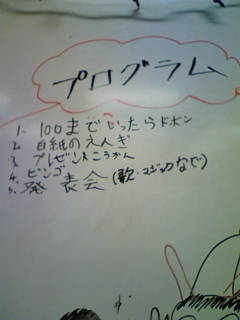 プログラム
1. 100まで いったらドボン
2. 白紙のえんぎ
3. プレゼントこうかん
4. ビンゴ
5. 発表会(歌・マジックなど)